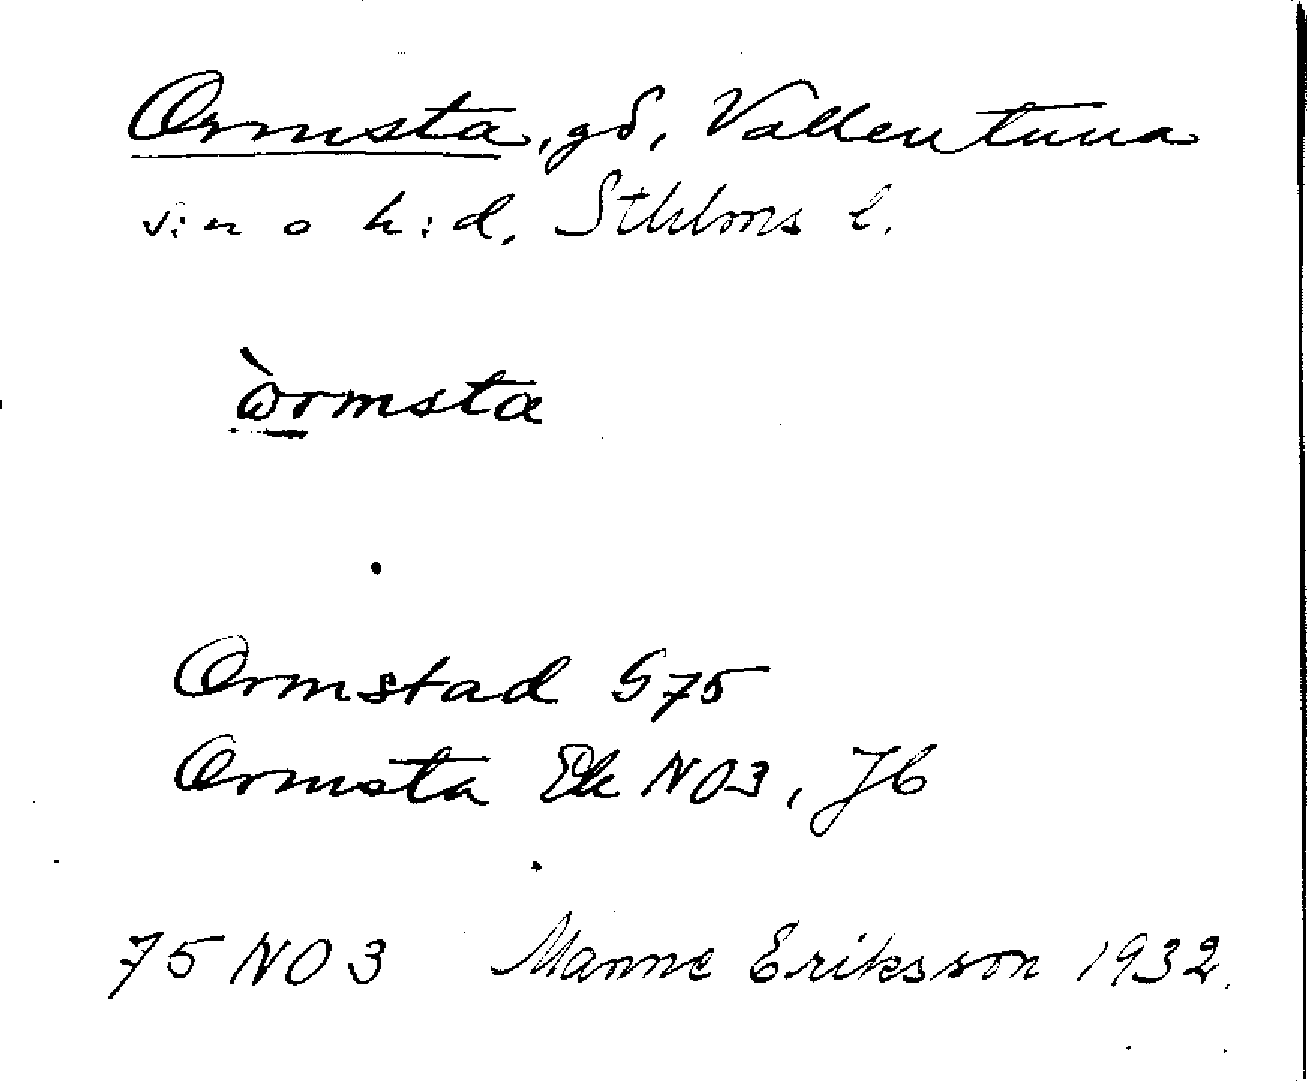 Ormsta, gd, Vallentuna
s:n o h:d, Sthlms l.
òrmsta
Ormstad G75
Ormsta Ek NO3, Jb
75 NO 3 Manne Eriksson 1932.